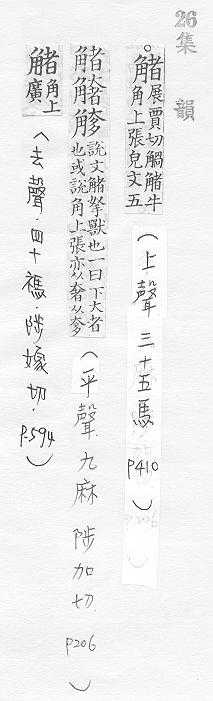 26 集韻
。觰 展賈切觸觰牛
角上張皃文五
(上聲 三十五馬 P410)
觰
說文觰拏獸也一曰下大者
也或說角上張亦从奢从
(平聲 九麻 陟加切 P206)
觰 角上
廣
(去聲.四十禡.陟嫁切.P.594)